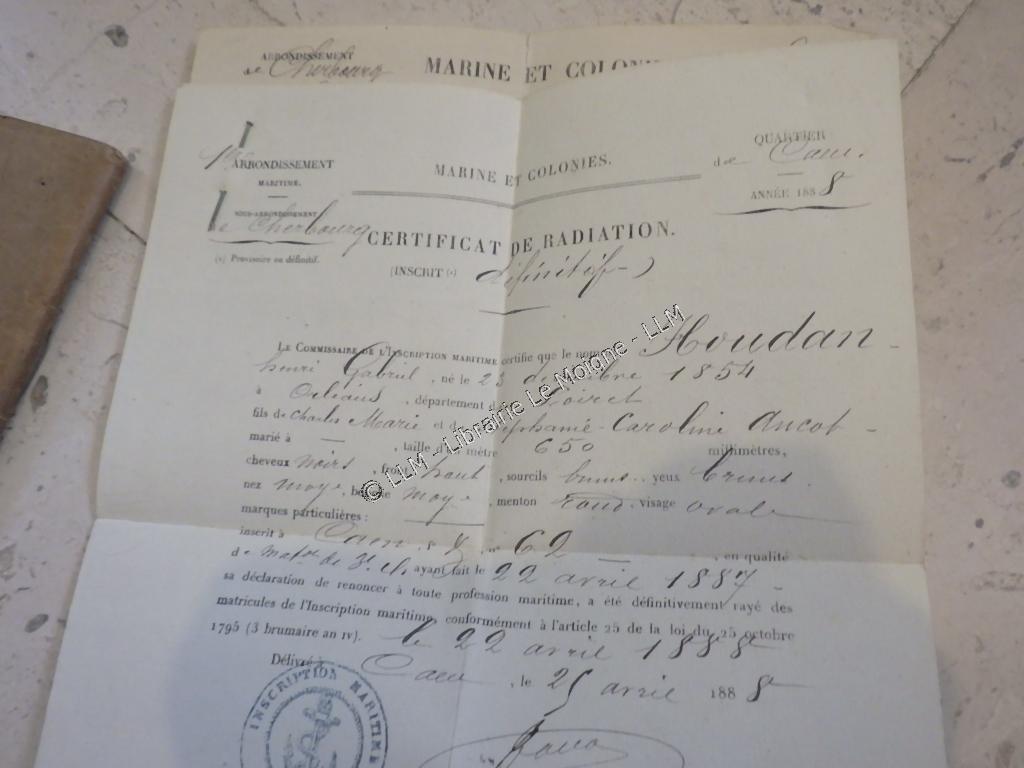 ARRONDISSEMENT
de Cherbourg
MARINE ET COLONI
1er ARRONDISSEMENT
MARITIME.
SOUS-ARRONDISSEMENT
de Cherbourg
(1) Provisoire ou définitif.
MARINE ET COLONIES.
QUARTIER
de Caen.
ANNÉE 1888
CERTIFICAT DE RADIATION.
(INSCRIT (1) définitif)
LE COMMISSAIRE DE L'INSCRIPTION MARITIME certifie que le nommé Houdan
henri Gabriel, né le 25 décembre 1854
à Orléans, département du Loiret
fils de Charles Marie et de Stéphanie Caroline Ancot
marié à —, taille d'un mètre 650 millimètres,
cheveux noirs, front haut, sourcils bruns, yeux bruns
nez moye, bouche moye, menton rond, visage ovale
marques particulières :
inscrit à Caen, f° 7, n° 62 —, en qualité
de mate de 3e cl, ayant fait le 22 avril 1887
sa déclaration de renoncer à toute profession maritime, a été définitivement rayé des
matricules de l'Inscription maritime, conformément à l'article 25 de la loi du 25 octobre
1795 (3 brumaire an IV). le 22 avril 1888
Délivré à Caen, le 25 avril 1888
INSCRIPTION MARITIME
© LLM - Librairie Le Moigne - LLM